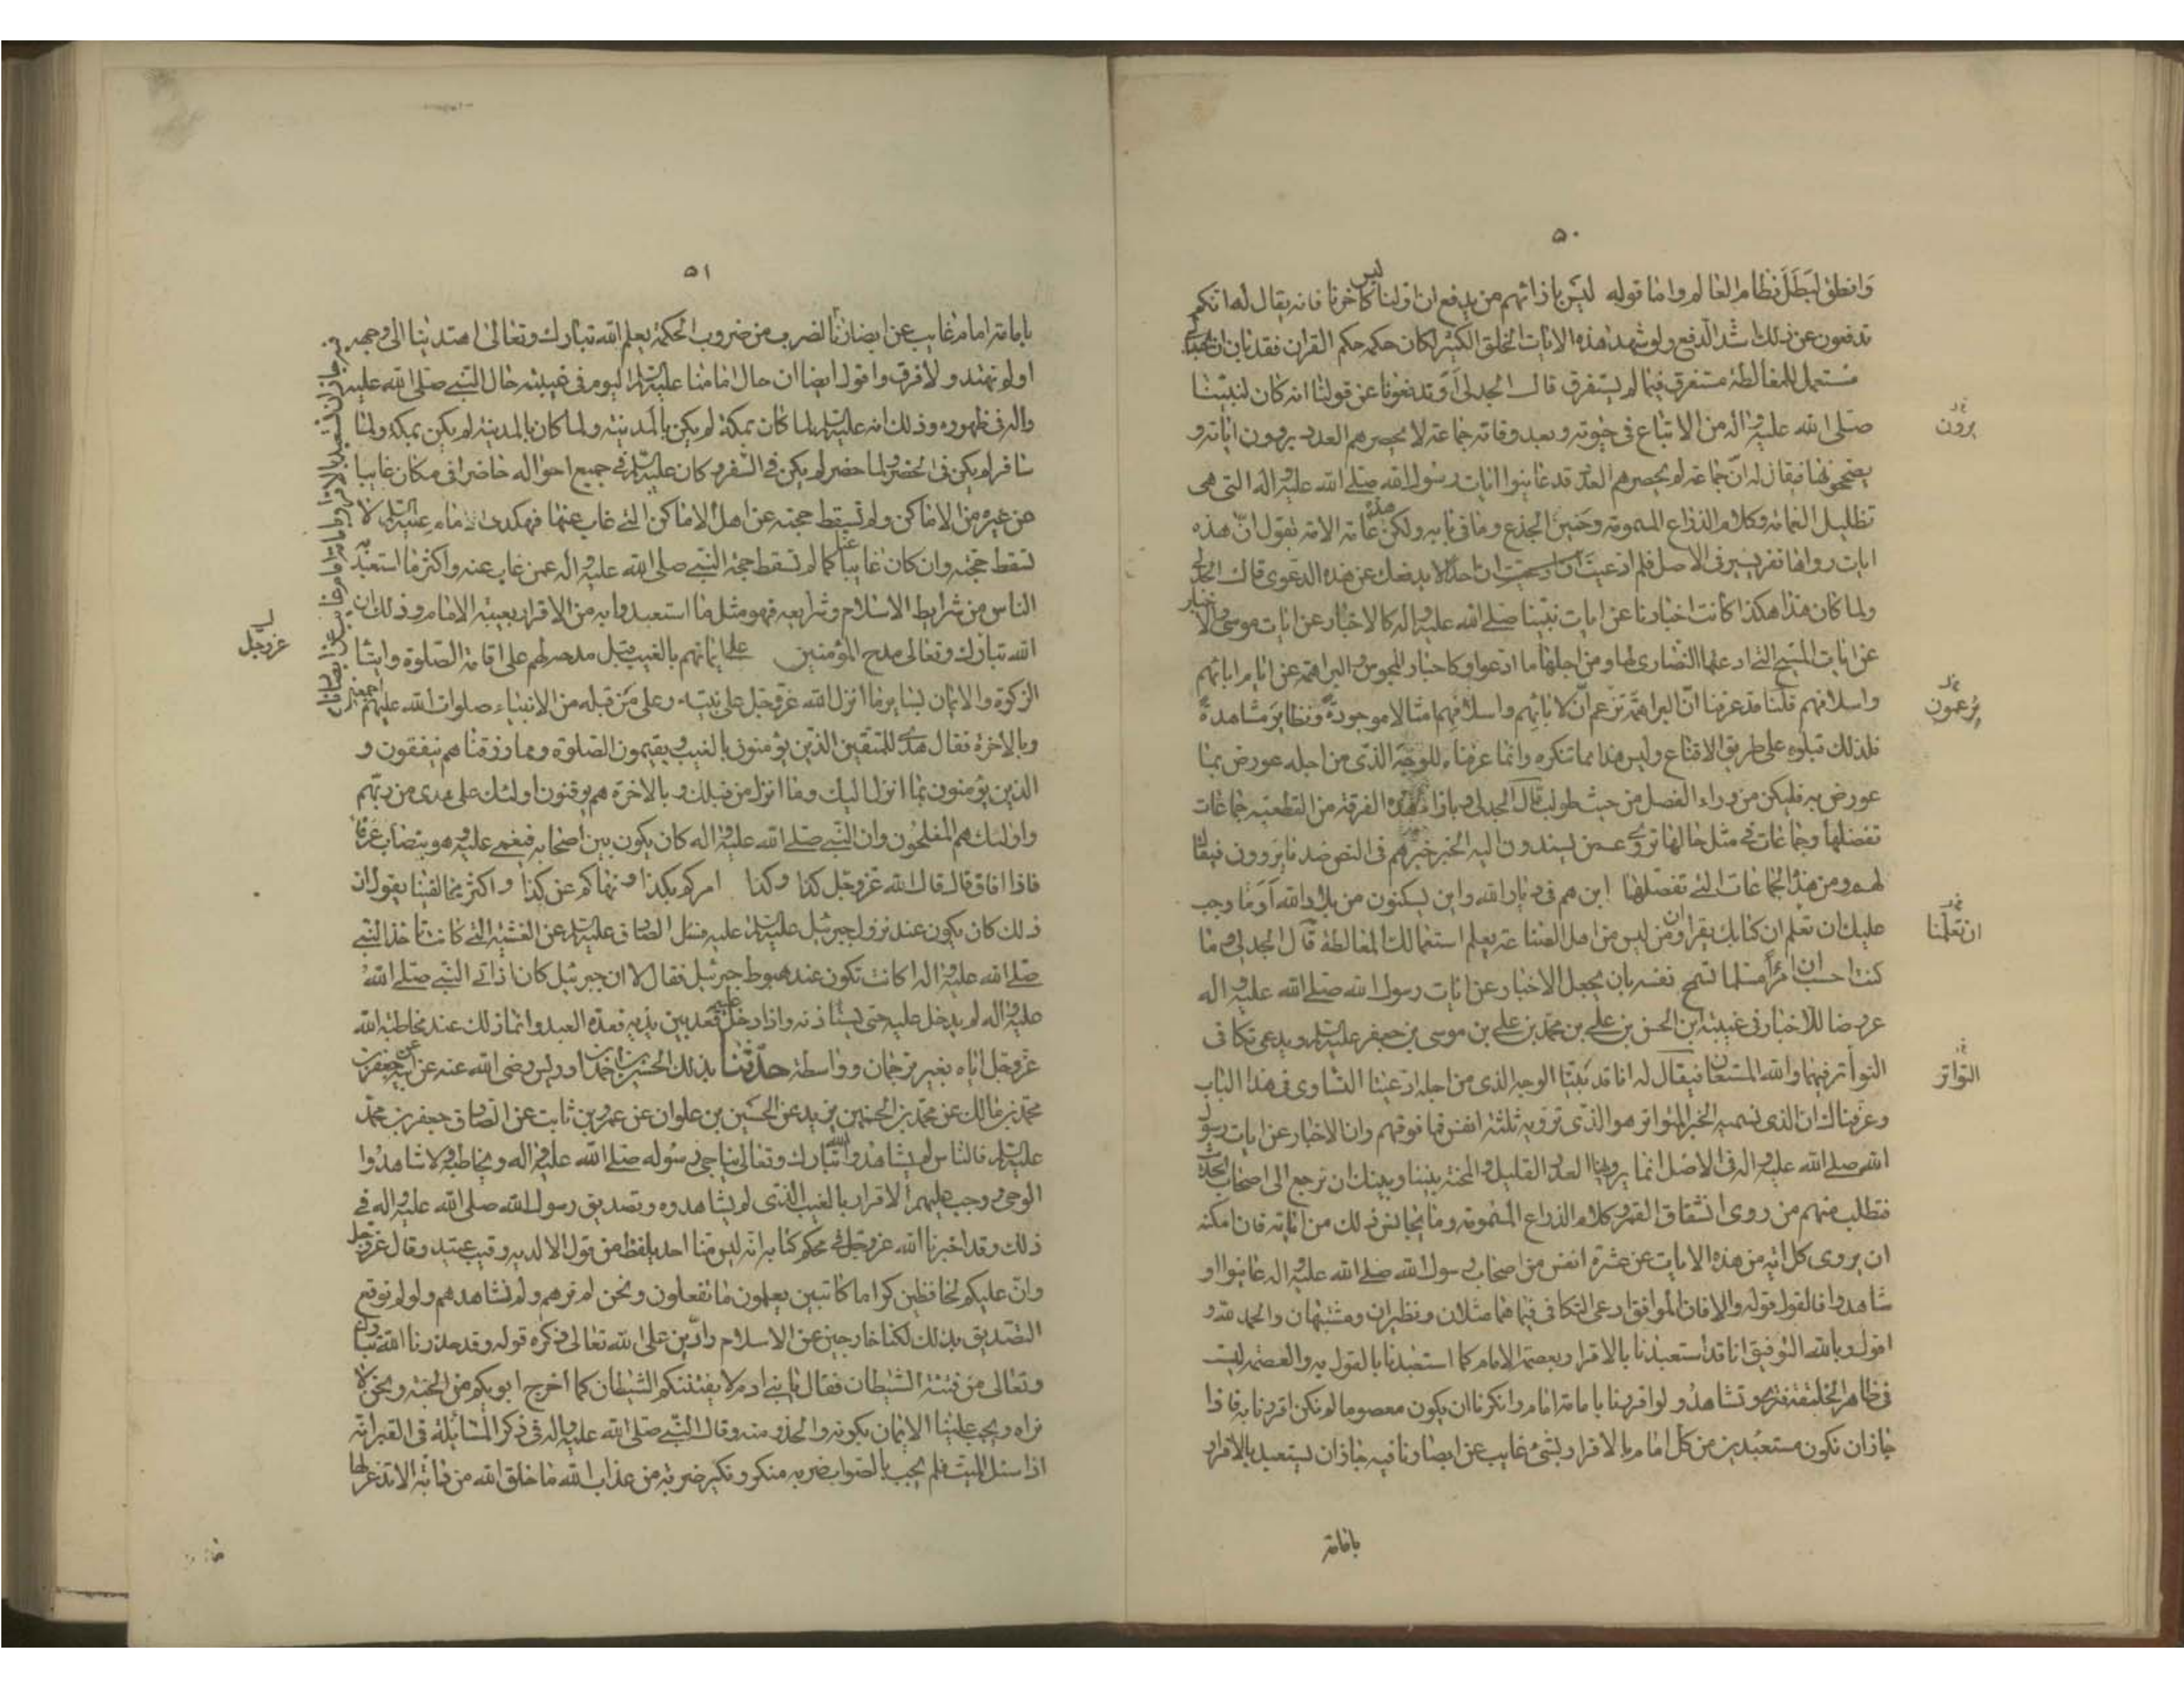 ۵۰
وانطلق لبطل نظام العالم واما قوله ليس بازائهم من يدفع ان اولنا ليس كاخرنا فانه يقال لها نكم
تدفعون عن ذلك اشد الدفع ولو شهد هذه الايات الخلق الكثير لكان حكمه حكم القران فقد بان ان الجدلى
مستعمل للمغالطة مستفرق فيما لم يستفرق قال الجدلى او تدفعونا عن قولنا انه كان لنبينا
صلى الله عليه واله من الاتباع فى حيوته وبعد وفاته جماعة لا يحصرهم العدد يروون اياته و
يصححونها فيقال له ان جماعة لم يحصرهم العدد قد عاينوا ايات رسول الله صلى الله عليه واله التى هى
تظليل الغمامة وكلام الذراع المسمومة وحنين الجذع وما فى بابه ولكن هذه عامة الامة تقول ان هذه
ايات رواها نفر يسير فى الاصل فلم ادعيت ان احدا لا يدفعك عن هذه الدعوى قال الجدلى
ولما كان هذا هكذا كانت اخبارنا عن ايات نبينا صلى الله عليه واله كالاخبار عن ايات موسى والاخبار
عن ايات المسيح التى ادعتها النصارى لها ومن اجلها ما ادعوا وكاخبار المجوس والبراهمة عن ايام ابائهم
واسلافهم قلنا قد عرفنا ان البراهمة تزعم ان لابائهم واسلافهم امثالا موجودة ونظاير مشاهدة
فلذلك قبلوه على طريق الاقناع وليس هذا مما تنكره وانما عرفناه للوجه الذى من اجله عورض بما
عورض به فليكن من وراء الفصل من حيث طولب قال الجدلى وبازاء هذه الفرقة من القطعية جماعات
تفضلها وجماعات فى مثل حالها تروى عمن يسندون اليه الخبر خبرهم فى النص ضد ما يروون فيقال
لهم ومن هذه الجماعات التى تفضلها اين هم فى ديار الله واين يسكنون من بلاد الله او ما وجب
عليك ان تعلم ان كتابك يقرا وان من ليس من اهل الصناعة يعلم استعمالك المغالطة قال الجدلى وما
كنت احسب ان امرأ مسلما تسمح نفسه بان يجعل الاخبار عن ايات رسول الله صلى الله عليه واله
عروضا للاخبار فى غيبة ابن الحسن بن على بن محمد بن على بن موسى بن جعفر عليه السلم ويدعى تكافى
التواتر فيهما والله المستعان فيقال له انا قد بينا الوجه الذى من اجله ادعينا التساوى فى هذا الباب
وعرفناك ان الذى نسميه الخبر المتواتر هو الذى ترويه ثلثة انفس فما فوقهم وان الاخبار عن ايات رسول
الله صلى الله عليه واله فى الاصل انما يرويها العدد القليل والمحنة بيننا وبينك ان نرجع الى اصحاب الحديث
فنطلب منهم من روى انشقاق القمر وكلام الذراع المسمومة وما يجانس ذلك من اياته فان امكنه
ان يروى كل اية من هذه الايات عن عشرة انفس من اصحاب رسول الله صلى الله عليه واله عاينوا او
شاهدوا فالقول قوله والا فان الموافق ادعى التكافى فيما هما مثلان ونظيران ومشتبهان والحمد لله و
اقول وبالله التوفيق انا قد استعبدنا بالاقرار بعصمة الامام كما استعبدنا بالقول به والعصمة ليست
فى ظاهر الخليقة فترى وتشاهد ولو اقررنا بامامة امام وانكرنا ان يكون معصوما لم نكن اقررنا به فاذا
جاز ان نكون مستعبدين من كل امام بالاقرار بشئ غايب عن ابصارنا فيه جاز ان نستعبد بالاقرار
بامامة
يروون
تزعمون
ان تعلمنا
التواتر
۵۱
بامامة امام غايب عن ابصارنا لضرب من ضروب الحكمة يعلم الله تبارك وتعالى اهتدينا الى وجهه
او لم نهتد ولا فرق واقول ايضا ان حال امامنا عليه السلم اليوم فى غيبته حال النبى صلى الله عليه
واله فى ظهوره وذلك انه عليه السلم لما كان بمكة لم يكن بالمدينة ولما كان بالمدينة لم يكن بمكة ولما
سافر لم يكن فى الحضر ولما حضر لم يكن فى السفر وكان عليه السلم فى جميع احواله حاضرا فى مكان غايبا
عن غيره من الاماكن ولم تسقط حجته عن اهل الاماكن التى غاب عنها فهكذى الامام عليه السلم لا
تسقط حجته وان كان غايبا عنا كما لم تسقط حجة النبى صلى الله عليه واله عمن غاب عنه واكثر ما استعبد به
الناس من شرايط الاسلام وشرايعه فهو مثل ما استعبدوا به من الاقرار بغيبة الامام وذلك ان
الله تبارك وتعالى مدح المؤمنين على ايمانهم بالغيب قبل مدحه لهم على اقامة الصلوة وايتاء
الزكوة والايمان بساير ما انزل الله عز وجل على نبيه وعلى من قبله من الانبياء صلوات الله عليهم اجمعين
وبالاخرة فقال هدى للمتقين الذين يؤمنون بالغيب ويقيمون الصلوة ومما رزقناهم ينفقون و
الذين يؤمنون بما انزل اليك وما انزل من قبلك وبالاخرة هم يوقنون اولئك على هدى من ربهم
واولئك هم المفلحون وان النبى صلى الله عليه واله كان يكون بين اصحابه فيغمى عليه وهو يتصاب عرقا
فاذا افاق قال قال الله عز وجل كذا وكذا امركم بكذا ونهاكم عن كذا واكثر مخالفينا يقول ان
ذلك كان يكون عند نزول جبرئيل عليه السلم عليه فسئل الصادق عليه السلم عن الغشية التى كانت تاخذ النبى
صلى الله عليه واله اكانت تكون عند هبوط جبرئيل فقال لا ان جبرئيل كان اذا اتى النبى صلى الله
عليه واله لم يدخل عليه حتى يستاذنه واذا دخل عليه قعد بين يديه قعدة العبد وانما ذلك عند مخاطبة الله
عز وجل اياه بغير ترجمان وواسطة حدثنا بذلك الحسين بن احمد بن ادريس رضى الله عنه عن ابيه عن جعفر بن
محمد بن مالك عن محمد بن الحسين بن زيد عن الحسين بن علوان عن عمرو بن ثابت عن الصادق جعفر بن محمد
عليه السلم فالناس لم يشاهدوا الله تبارك وتعالى يناجى رسوله صلى الله عليه واله ويخاطبه ولا شاهدوا
الوحى ووجب عليهم الاقرار بالغيب الذى لم يشاهدوه وتصديق رسول الله صلى الله عليه واله فى
ذلك وقد اخبرنا الله عز وجل فى محكم كتابه انه ليس منا احد يلفظ من قول الا لديه رقيب عتيد وقال عز وجل
وان عليكم لحافظين كراما كاتبين يعلمون ما تفعلون ونحن لم نرهم ولم نشاهدهم ولو لم نوقع
التصديق بذلك لكنا خارجين عن الاسلام رادين على الله تعالى ذكره قوله وقد حذرنا الله تبارك
وتعالى من فتنة الشيطان فقال يا بنى ادم لا يفتننكم الشيطان كما اخرج ابويكم من الجنة ونحن لا
نراه ويجب علينا الايمان بكونه والحذر منه وقال النبى صلى الله عليه واله فى ذكر المسائلة فى القبر انه
اذا سئل الميت فلم يجب بالصواب ضربه منكر ونكير ضربة من عذاب الله ما خلق الله من دابة الا تذعر لها
فيه جاز ان نستعبد بالاقرار بامامة امام غايب عن ابصارنا
عز وجل